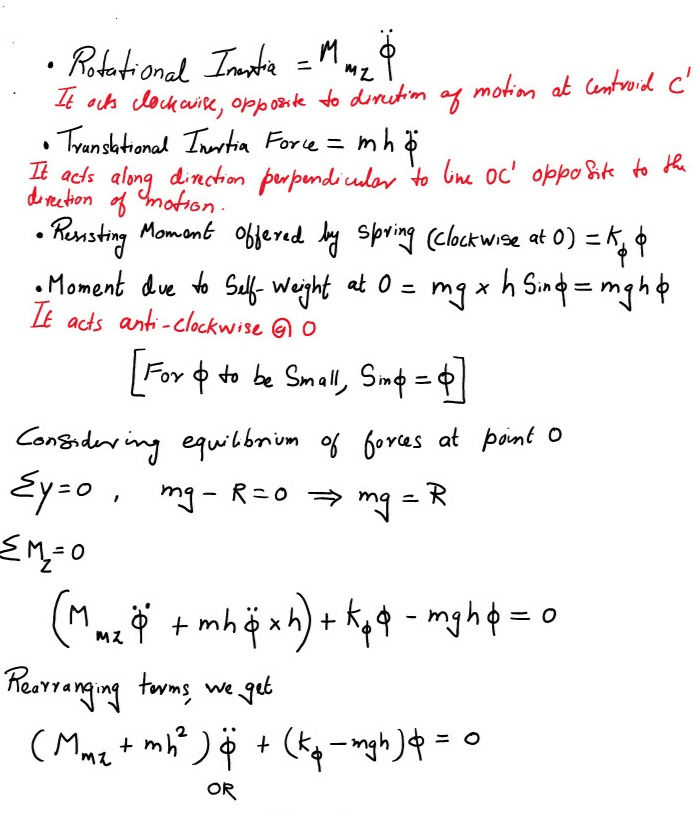 • Rotational Inertia = M_mz φ̈
It acts clockwise, opposite to direction of motion at Centroid C'
• Translational Inertia Force = mh φ̈
It acts along direction perpendicular to line OC' opposite to the
direction of motion.
• Resisting Moment offered by Spring (clockwise at O) = K_φ φ
• Moment due to Self-Weight at O = mg × h Sinφ = mghφ
It acts anti-clockwise @ O
[For φ to be Small, Sinφ = φ]
Considering equilbrium of forces at point O
Σy=0 , mg - R = 0 ⇒ mg = R
ΣM_z=0
(M_mz φ̈ + mh φ̈ × h) + k_φ φ - mghφ = 0
Rearranging terms, we get
(M_mz + mh²) φ̈ + (k_φ - mgh)φ = 0
OR